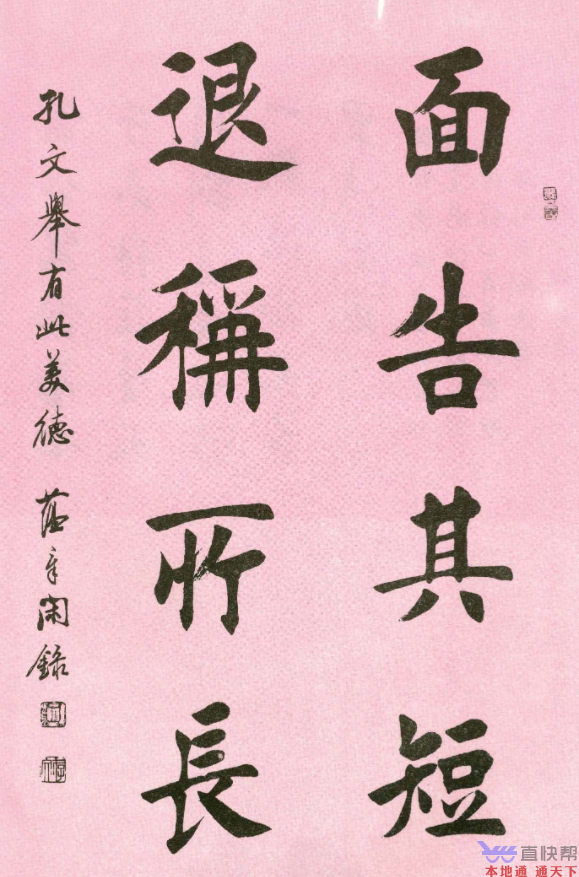 面告其短
退稱所長
孔文舉有此美德 蘊章閑錄
直快帮
本地通 通天下